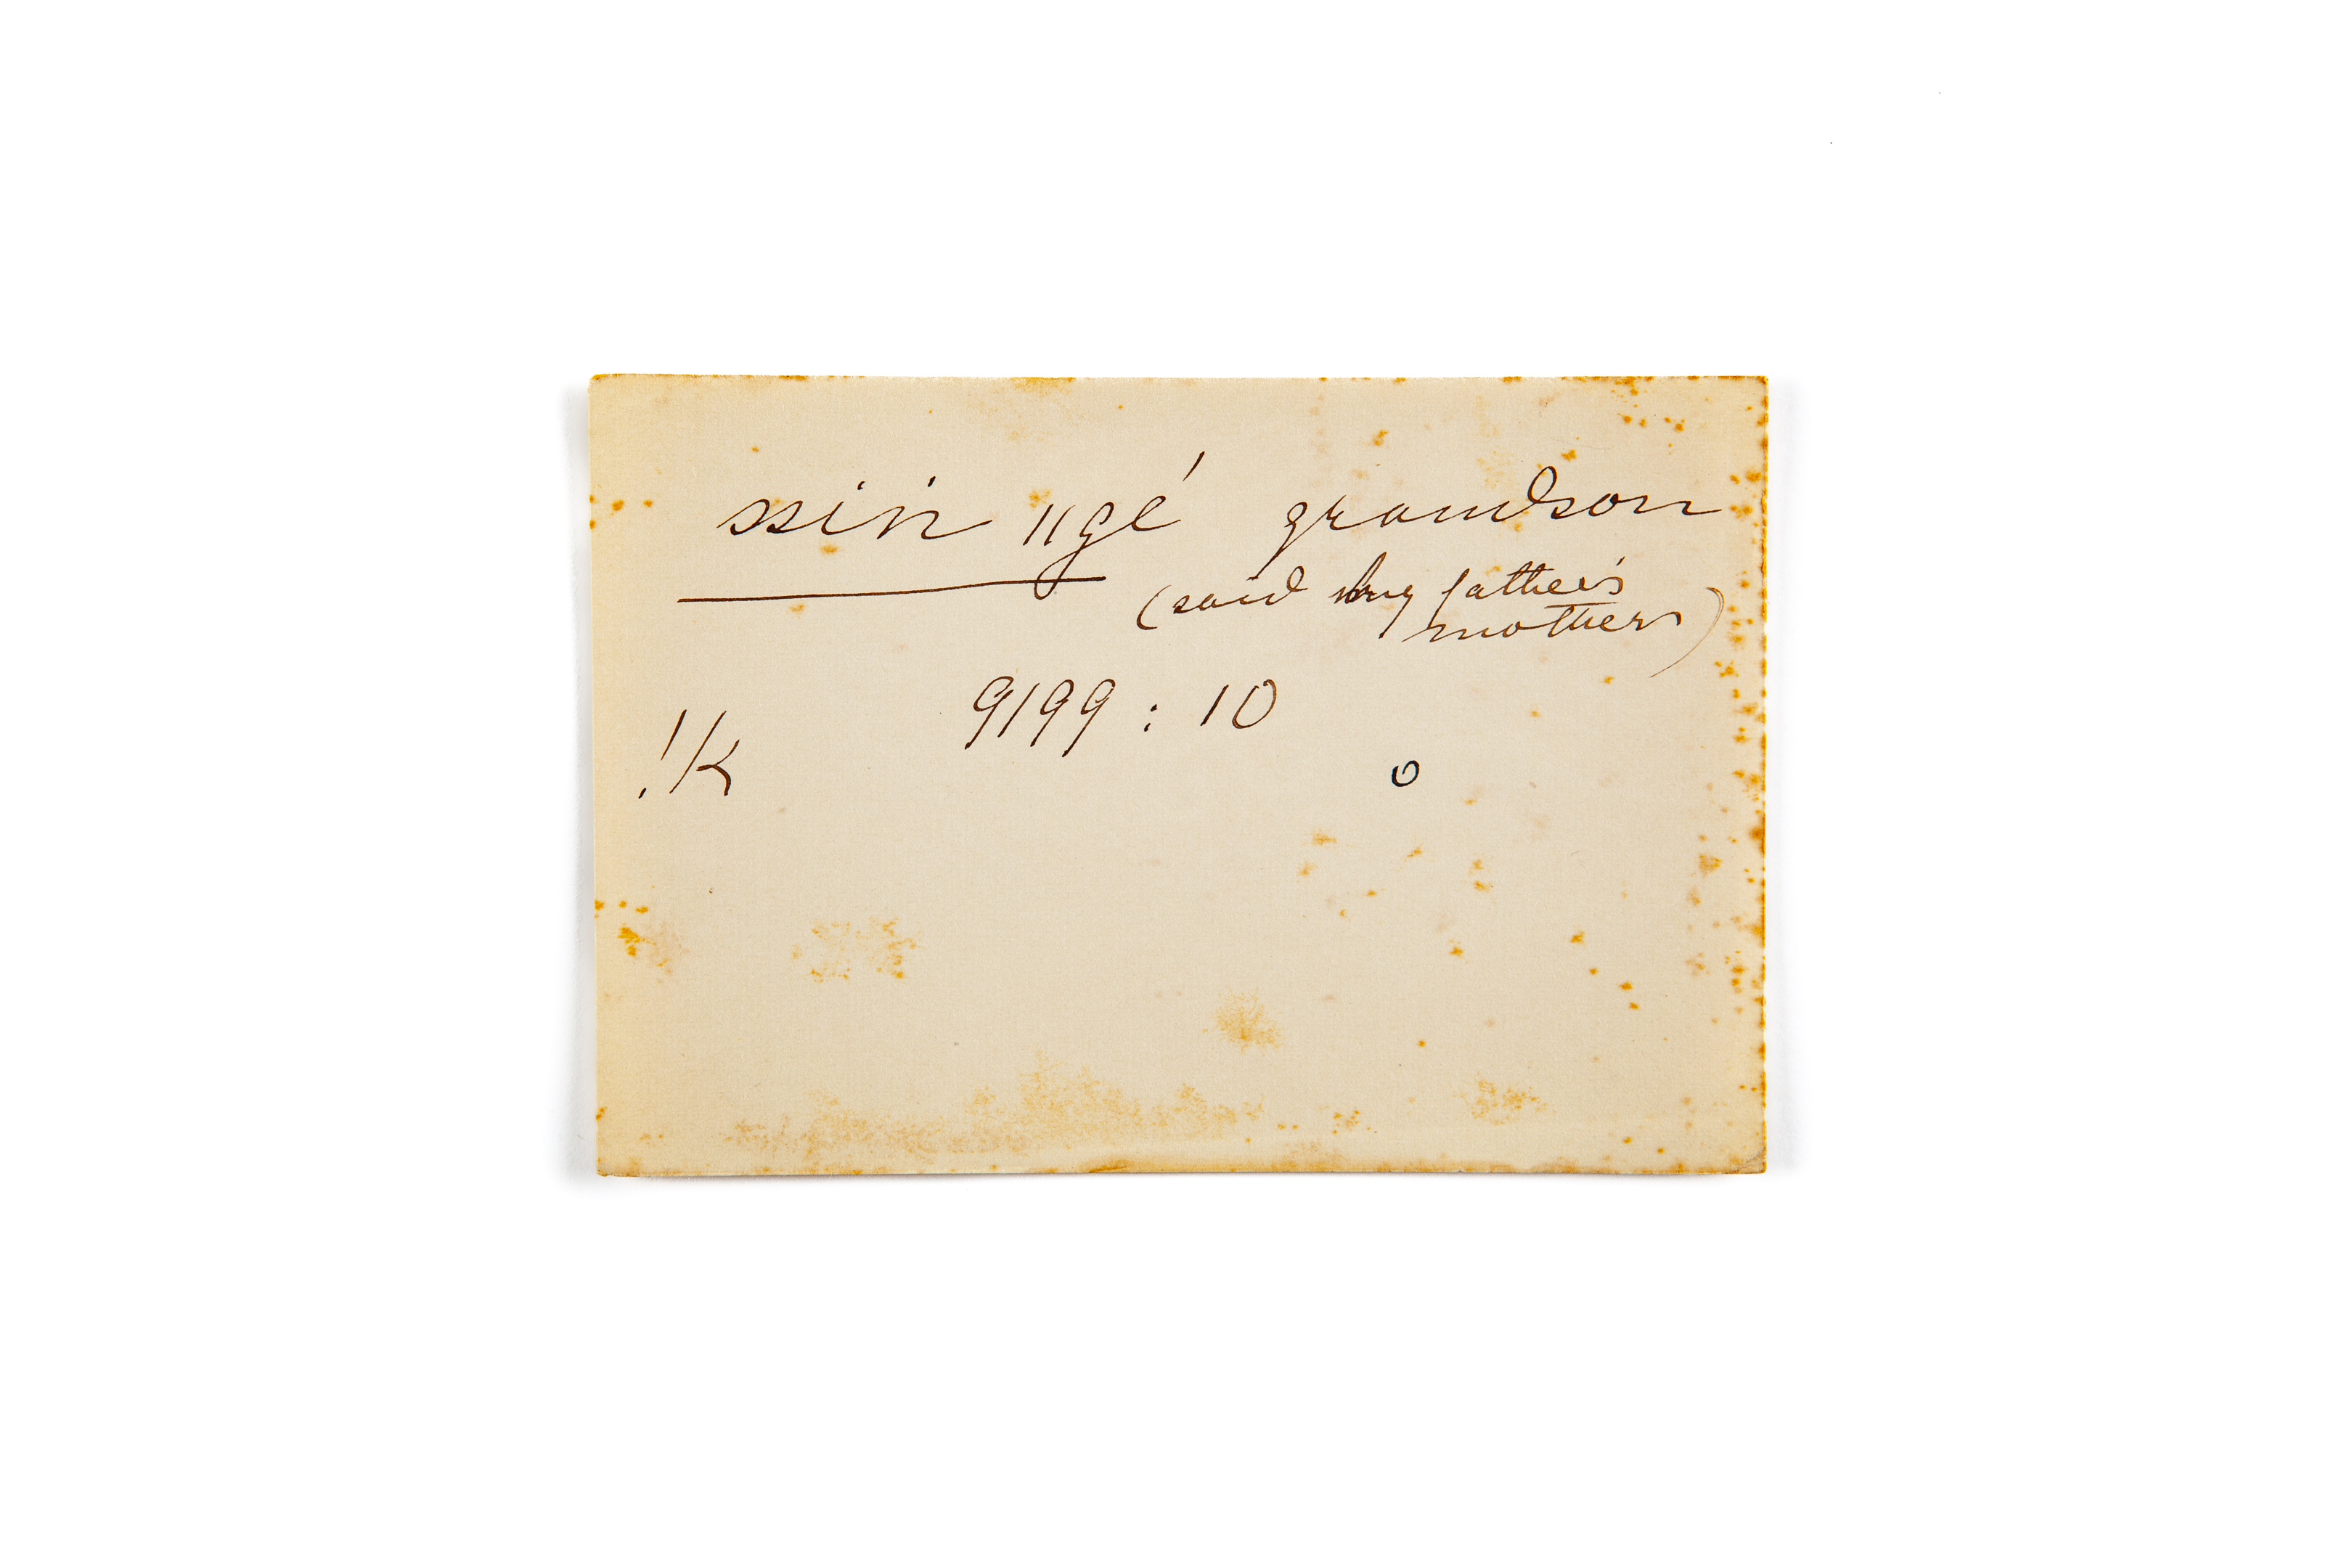 ssin ǁgé grandson
(said by father's
mother)
9199 : 10
!k
o